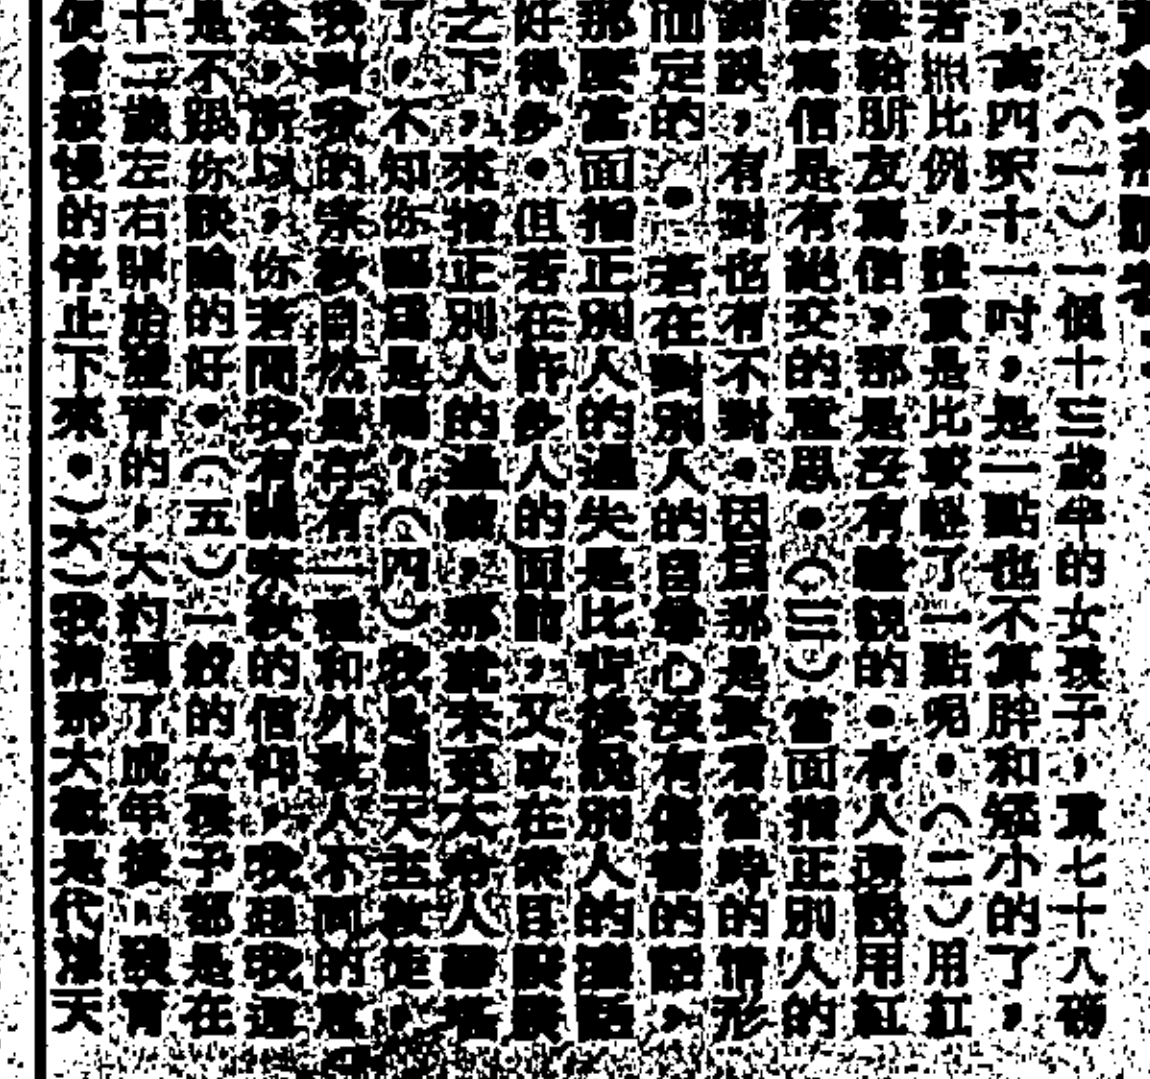 （一）一個十三歲半的女孩子，重七十八磅
，高四呎十一吋，是一點也不算胖和矮小的了，
若照比例，體重是比較輕了一點呢。（二）用紅
給朋友寫信，那是沒有的。有人說用紅
寫信是有絕交的意思。（三）當面指正別人的
，有對也有不對。因爲那是要看當時的情形
而定的。若在對別人的自尊心沒有傷害的話，
那麽當面指正別人的過失是比背後說別人的壞話
好得多。但若在許多人的面前，又或在衆目
之下，來指正別人的過，那就未免太令人
了。不知你認爲是嗎？（四）我是個天主教徒，
我對我的宗教自然是存有一種和外教人不同的
念，所以，你若問我有關宗教的信仰，我想我還
是不跟你談論的好。（五）一般的女孩子都是在
十二歲左右開始發育的，大約到了成年後，發育
便會緩慢的停止下來。（六）我猜那大概是代